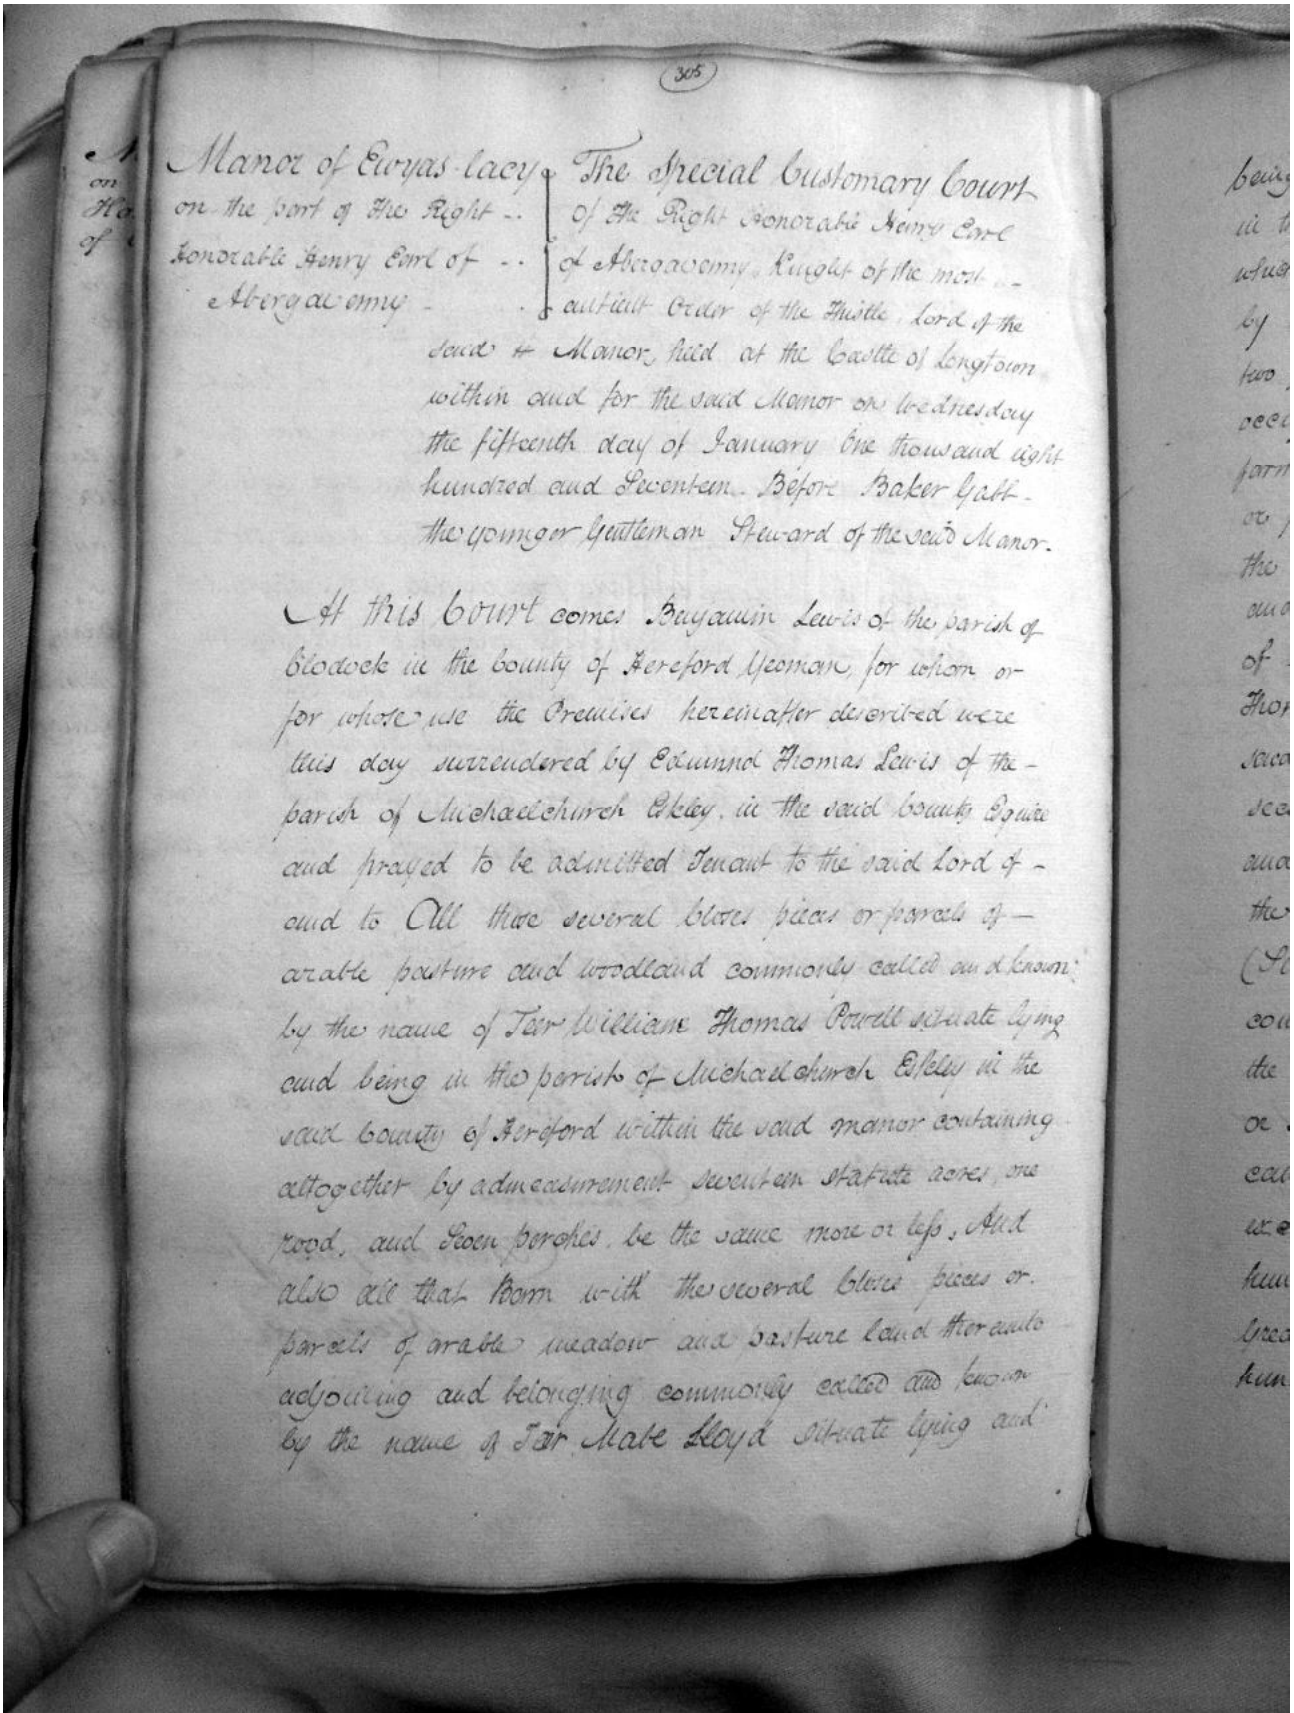 305
Manor of Ewyas-lacy
on the part of The Right - .
Honorable Henry Earl of - .
Abergavenny -
The Special Customary Court
of the Right Honorable Henry Earl
of Abergavenny, Knight of the most - -
antient Order of the Thistle, Lord of the
said Manor, held at the Castle of Longtown
within and for the said Manor on Wednesday
the fifteenth day of January One thousand eight
hundred and Seventeen. Before Baker Gabb -
the younger Gentleman Steward of the said Manor.
At this Court comes Benjamin Lewis of the parish of
Clodock in the County of Hereford Yeoman, for whom or
for whose use the Premises hereinafter described were
this day surrendered by Edmund Thomas Lewis of the -
parish of Michaelchurch Eskley, in the said County Esquire
and prayed to be admitted Tenant to the said Lord of -
and to All those several Closes pieces or parcels of -
arable pasture and woodland commonly called and known
by the name of Teer William Thomas Powell situate lying
and being in the parish of Michaelchurch Eskley in the
said County of Hereford within the said manor containing
altogether by admeasurement seventeen statute acres, one
rood, and Seven perches, be the same more or less, And
also all that Barn with the several Closes pieces or
parcels of arable meadow and pasture land thereunto
adjoining and belonging commonly called and known
by the name of Teer Mabe Lloyd situate lying and
being
in
which
by
two
occ
farm
or
the
and
of
Tho
said
sec
and
the
(S
cou
the
or
call
exc
hun
Grea
hun
N
on
Ho
of